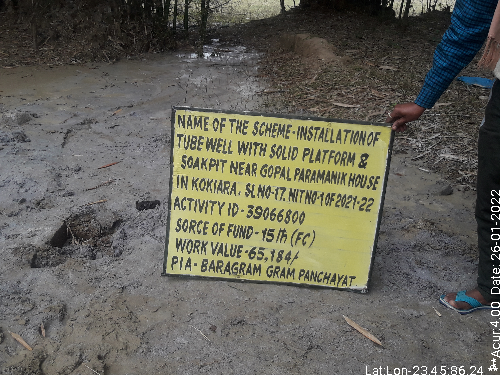 NAME OF THE SCHEME-INSTALLATION OF
TUBE WELL WITH SOLID PLATFORM &
SOAKPIT NEAR GOPAL PARAMANIK HOUSE
IN KOKIARA. SL NO-17. NIT NO-1 OF 2021-22
ACTIVITY ID - 39066800
SORCE OF FUND - 15th (FC)
WORK VALUE - 65,184/-
PIA - BARAGRAM GRAM PANCHAYAT
Lat:Lon-23.45:86.24
**Acur:4.00 Date: 26-01-2022